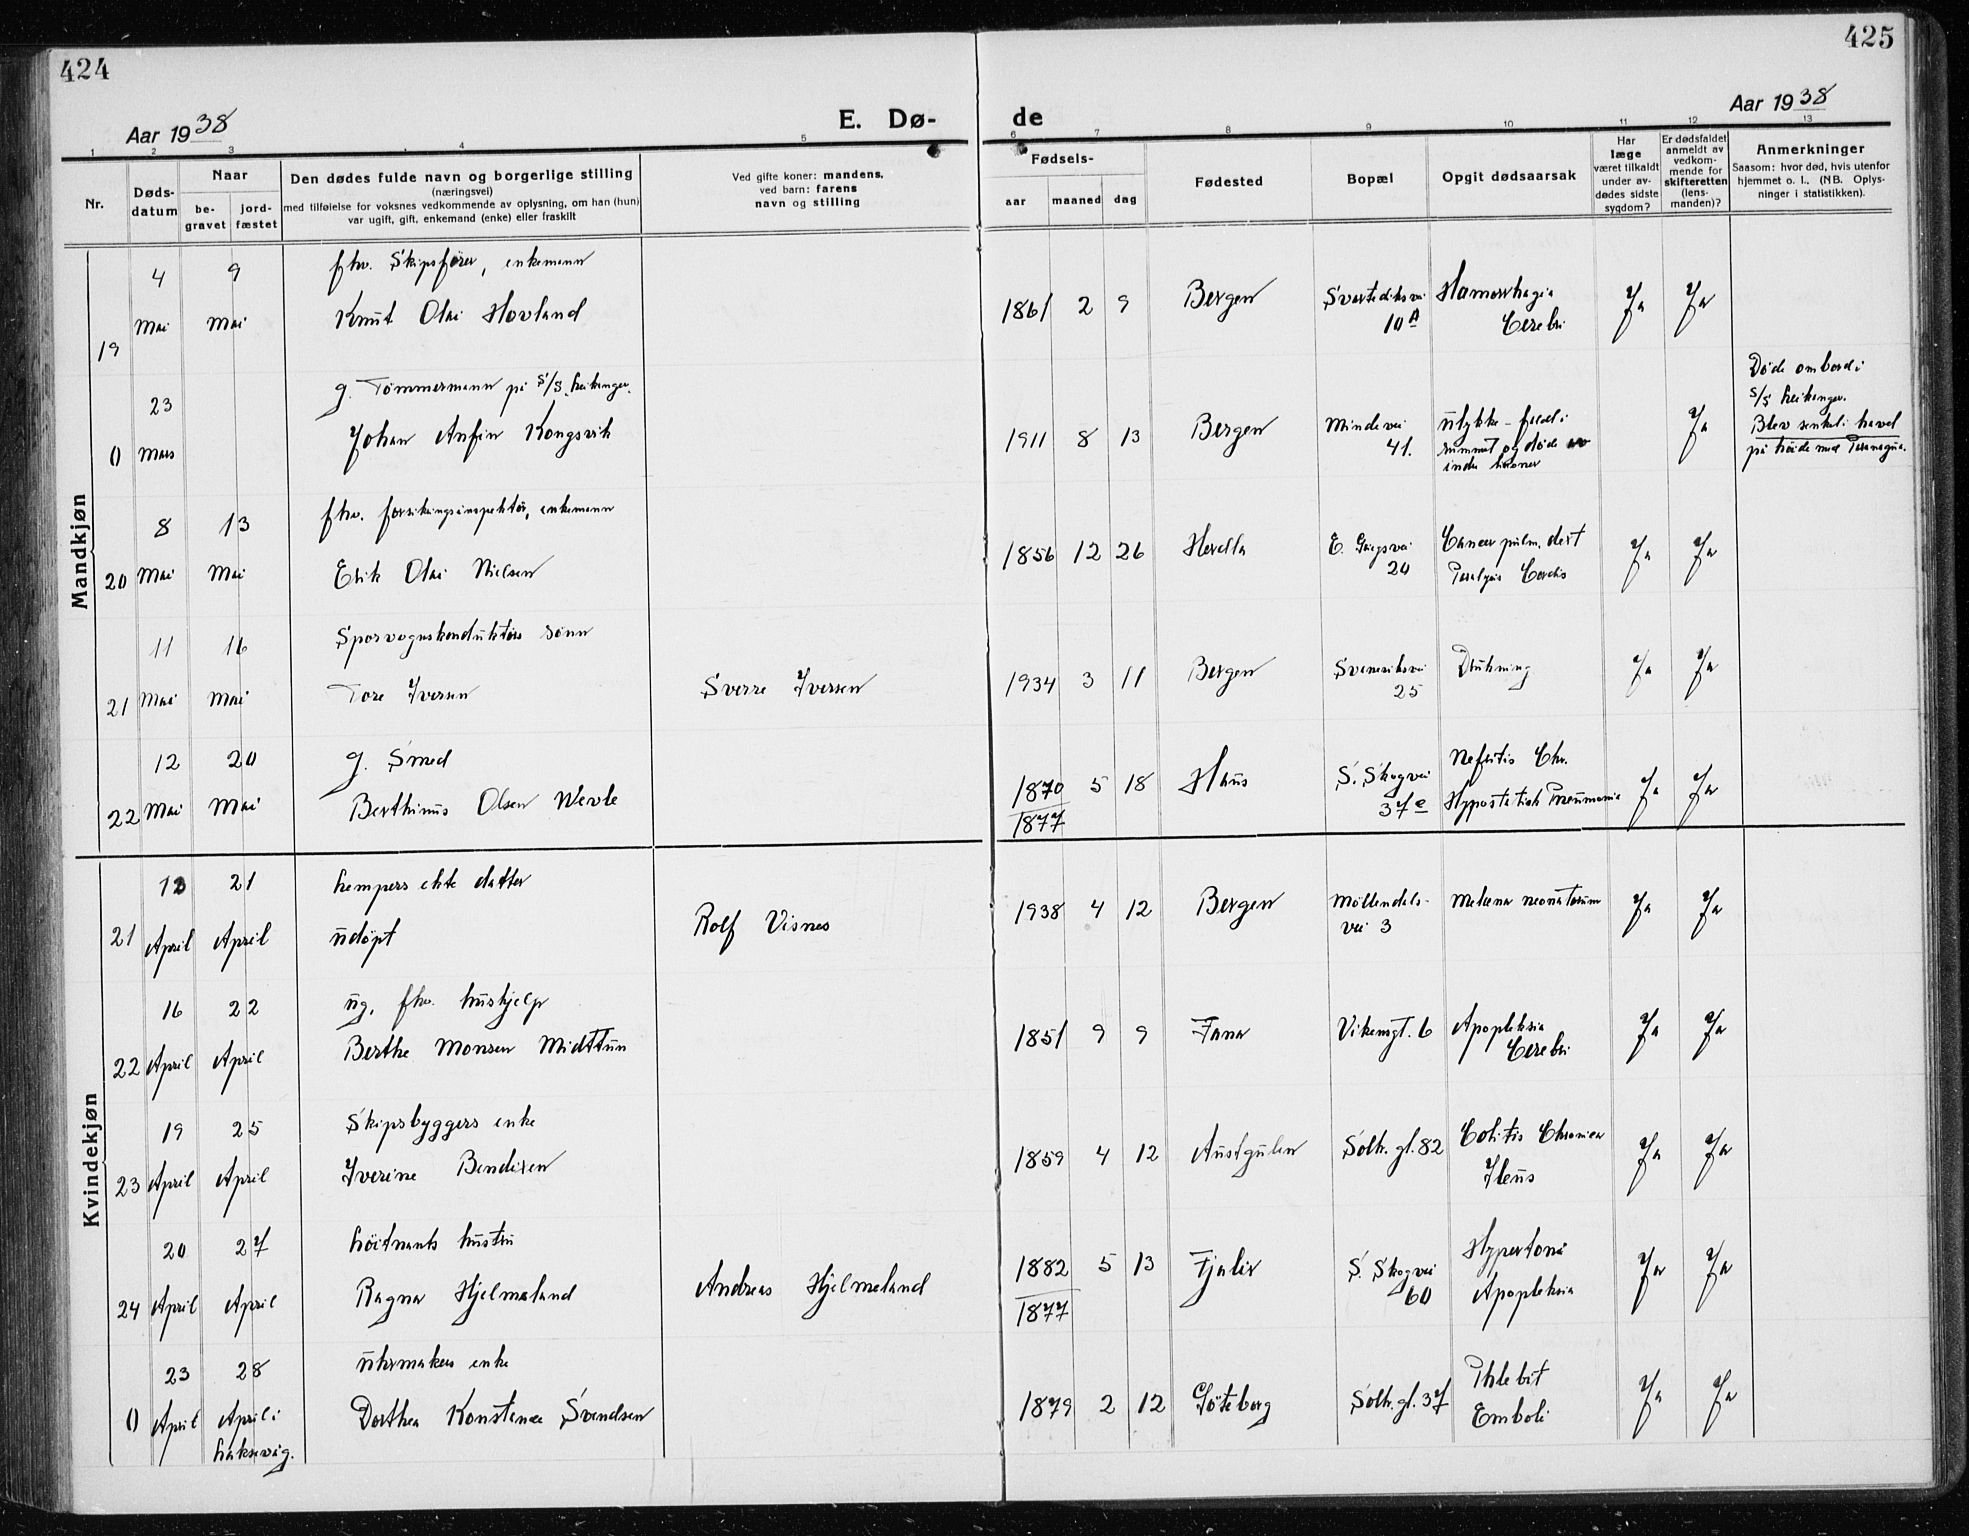 424
425
Aar 1938
E. Dø-
de
Aar 1938
1 2 3 4 5 6 7 8 9 10 11 12 13
Nr.
Døds-
datum
Naar
be-
gravet
jord-
fæstet
Den dødes fulde navn og borgerlige stilling
(næringsvei)
med tilføielse for voksnes vedkommende av oplysning, om han (hun)
var ugift, gift, enkemand (enke) eller fraskilt
Ved gifte koner: mandens,
ved barn: farens
navn og stilling
Fødsels-
aar
maaned
dag
Fødested
Bopæl
Opgit dødsaarsak
Har
læge
været tilkaldt
under av-
dødes sidste
sygdom?
Er dødsfaldet
anmeldt av
vedkom-
mende for
skifteretten
(lens-
manden)?
Anmerkninger
Saasom: hvor død, hvis utenfor
hjemmet o. l., (NB. Oplys-
ninger i statistikken).
Mandkjøn
4 9 fhv. Skipsfører, enkemann
19 Mai Mai Knut Olai Hovland 1861 2 9 Bergen Svartediksvei Hæmorrhagia Ja Ja
10A Cerebri
23 g. Tømmermann på S/S
0 Mars Johan Anfin Kongsvik 1911 8 13 Bergen Mindevei Ulykke - faldt i Ja
41. rummet og døde
Døde ombord i
S/S
Blev senket i havet
på høide med Paranagua.
8 13 fhv. enkemann
20 Mai Mai Erik Olai Nielsen 1856 12 26 Herdla E. Griegsvei Cancer pulm. dext Ja Ja
20 Paralysis Cordis
11 16 Sporvognskonduktørs sønn
21 Mai Mai Tore Iversen Sverre Iversen 1934 3 11 Bergen Drukning Ja Ja
25
12 20 g. Smed
22 Mai Mai Berthinus Olsen Wevle 1870 5 18 Haus S. Skogvei Nefritis Chr. Ja Ja
1877 37e Hypostatisk Pneumonia
Kvindekjøn
12 21 kempers ekte datter
21 April April udøpt Rolf Visnes 1938 4 12 Bergen Møllendals- Melena neonatorum Ja Ja
vei 3
16 22 ug. fhv. hushjelp
22 April April Berthe Monsen Midttun 1851 9 9 Fana Vikensgt. 6 Apopleksia Ja Ja
Cerebri
19 25 Skipsbyggers enke
23 April April Iverine Bendixen 1859 4 12 Austgulen Solh. gt. 82 Colitis Chronica Ja Ja
Ileus
20 27 Løitnants hustru
24 April April Ragna Hjelmeland Andreas Hjelmeland 1882 5 13 Fjaler S. Skogvei Hypertoni Ja Ja
1877 60 Apopleksia
23 28 uhrmakers enke
0 April April i Dorthea Konstance Svendsen 1879 2 12 Gøteborg Solh. gt. 37 Phlebit Ja Ja
Laksevåg. Emboli